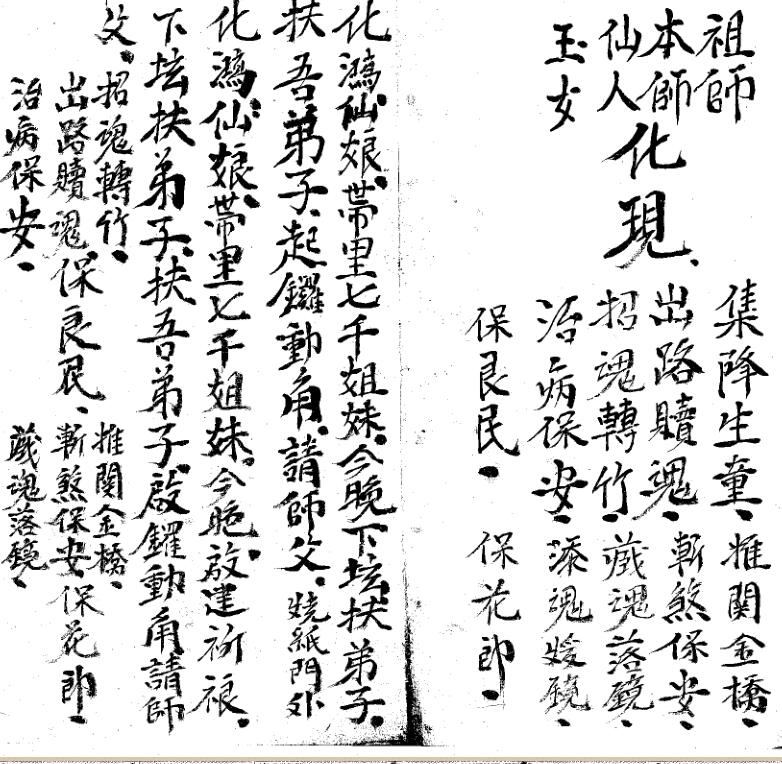 祖師
本師
仙人
玉女
化現、
集降生童、推関金橋、
出路贖魂、斬煞保安、
招魂轉竹、藏魂落鏡、
治病保安、添魂媛鏡、
保良民、保花郎、
化鴻仙娘、帯里七千姐妹。今晚下坛扶弟子、
扶吾弟子、起鑼動角。請師父、燒紙門外
化鴻仙娘、帯里七千姐妹。今晚啟建祈禳。
下坛扶弟子、扶吾弟子、啟鑼動角請師
父、招魂轉竹、推関金橋、
出路贖魂、保良民、斬煞保安、保花郎、
治病保安、藏魂落鏡、